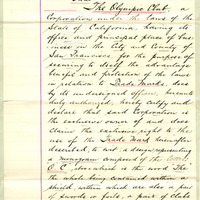 The Olympic Club, a
Corporation under the Laws of the
State of California, having its
office and principal place of bus-
iness in the City and County of
San Francisco, for the purpose of
securing to itself the advantage,
benefit and protection of the laws
in relation to Trade Marks, does
by its undersigned officer, hereunto
duly authorized, hereby certify and
declare that said corporation is
the exclusive owner of and does
Claim the exclusive right to the
use of the Trade Mark hereinafter
described, to wit: a design representing
a monogram composed of the letters
O. C. above which is the word The
the whole being contained within a
shield, within which are also a pair
of swords or foils, a pair of clubs